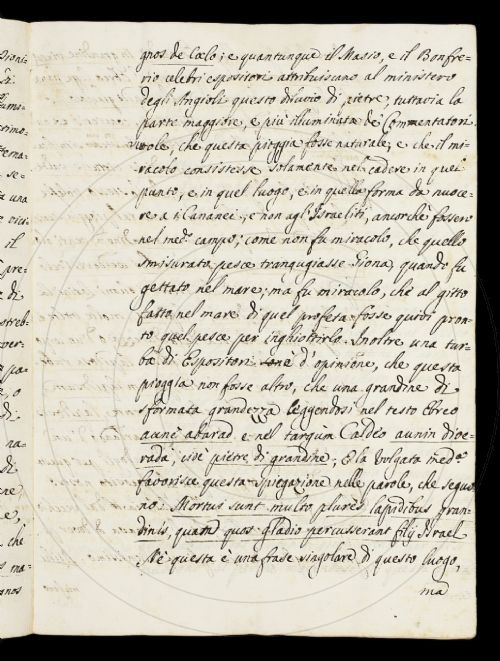 gnos de Cœlo; e quantunque il Masio, e il Bonfre-
rio celebri espositori attribuiscano al ministero
degli Angioli questo diluvio di pietre, tuttavia la
parte maggiore, e più illuminata de' Commentatori
vuole, che questa pioggia fosse naturale, e che il mi-
racolo consistesse solamente nel cadere in quel
punto, e in quel luogo, e in quella forma da nuoce-
re a i Cananei, e non agl'Israeliti, ancorchè fossero
nel med.º campo; come non fu miracolo, che quello
smisurato pesce trangugiasse Giona, quando fu
gettato nel mare; ma fu miracolo, che al gitto
fatto nel mare di quel profeta fosse quivi pron-
to quel pesce per inghiottirlo. Inoltre una tur-
ba di Espositori è d'opinione, che questa
pioggia non fosse altro, che una grandine di
sformata grandezza leggendosi nel testo Ebreo
avnè abarad e nel targùm Caldeo
vide pietre di grandine; e la Vulgata med.ª
favorisce questa spiegazione nelle parole, che seguo-
no: Mortui sunt multo plures lapidibus gran-
dinis, quam quos gladio percusserant filij Israel
Nè questa è una frase singolare di questo luogo,
ma
Dioni-
una
il
pre-
di
ver-
o
di
na-
di
e,
che
ma-